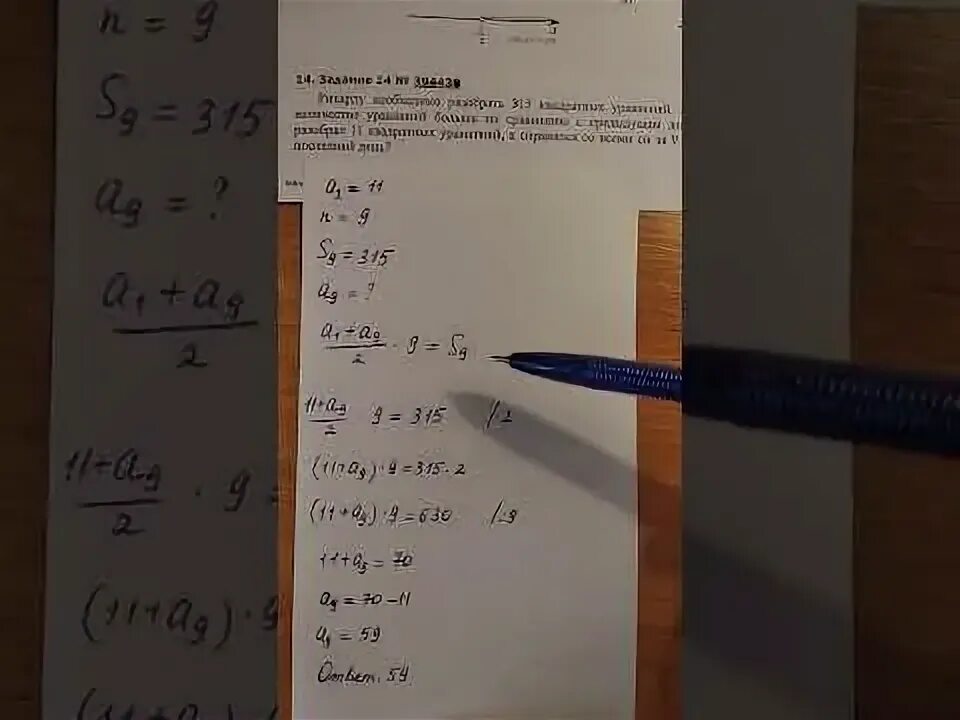 24. Задание 24 № 394438
необходимо разобрать 315 квадратных уравнений
количество уравнений больше по сравнению с предыдущим
разобрал 11 квадратных уравнений, а справился со всеми за
последний день?
a₁ = 11
n = 9
S₉ = 315
a₉ = ?
(a₁ + a₉)/2 · 9 = S₉
(11+a₉)/2 9 = 315 /·2
(11+a₉)·9=315·2
(11+a₉)·9=630 /:9
11+a₉ = 70
a₉ = 70-11
a₉ = 59
Ответ. 59
n = 9
S₉ = 315
a₉ = ?
(a₁ + a₉)/2
(11+a₉)/2 · 9 =
(11+a₉)·9